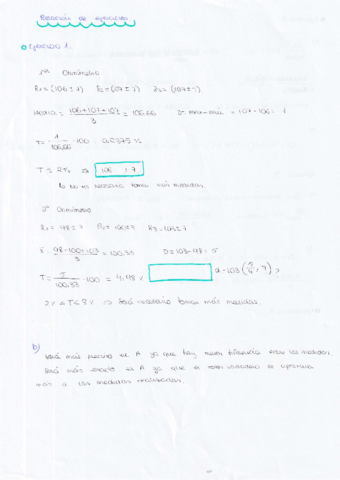 Relación de ejercicios
Ejercicio 1.
1er Ohmímetro
R1 = (106 ± 7) R2 = (107 ± 7) R3 = (107 ± 7)
Media = 106+107+107 / 3 = 106,66 D = max - min = 107-106 = 1
T = 1 / 106,66 · 100 = 0,9375 %
T ≤ 2% ⇒ 106 ± 7
No es necesario tomar más medidas.
2º Ohmímetro
R1 = 98 ± 7 R2 = 100 ± 7 R3 = 103 ± 7
98+100+103 / 3 = 100,33 D = 103-98 = 5
T = 5 / 100,33 · 100 = 4,98 %
2% ≤ T ≤ 8% ⇒ Será necesario tomar más medidas.
b)
Será más preciso el A ya que hay menos diferencia entre las medidas.
Será más exacto el A ya que el valor verdadero se aproxima
más a las medidas realizadas.